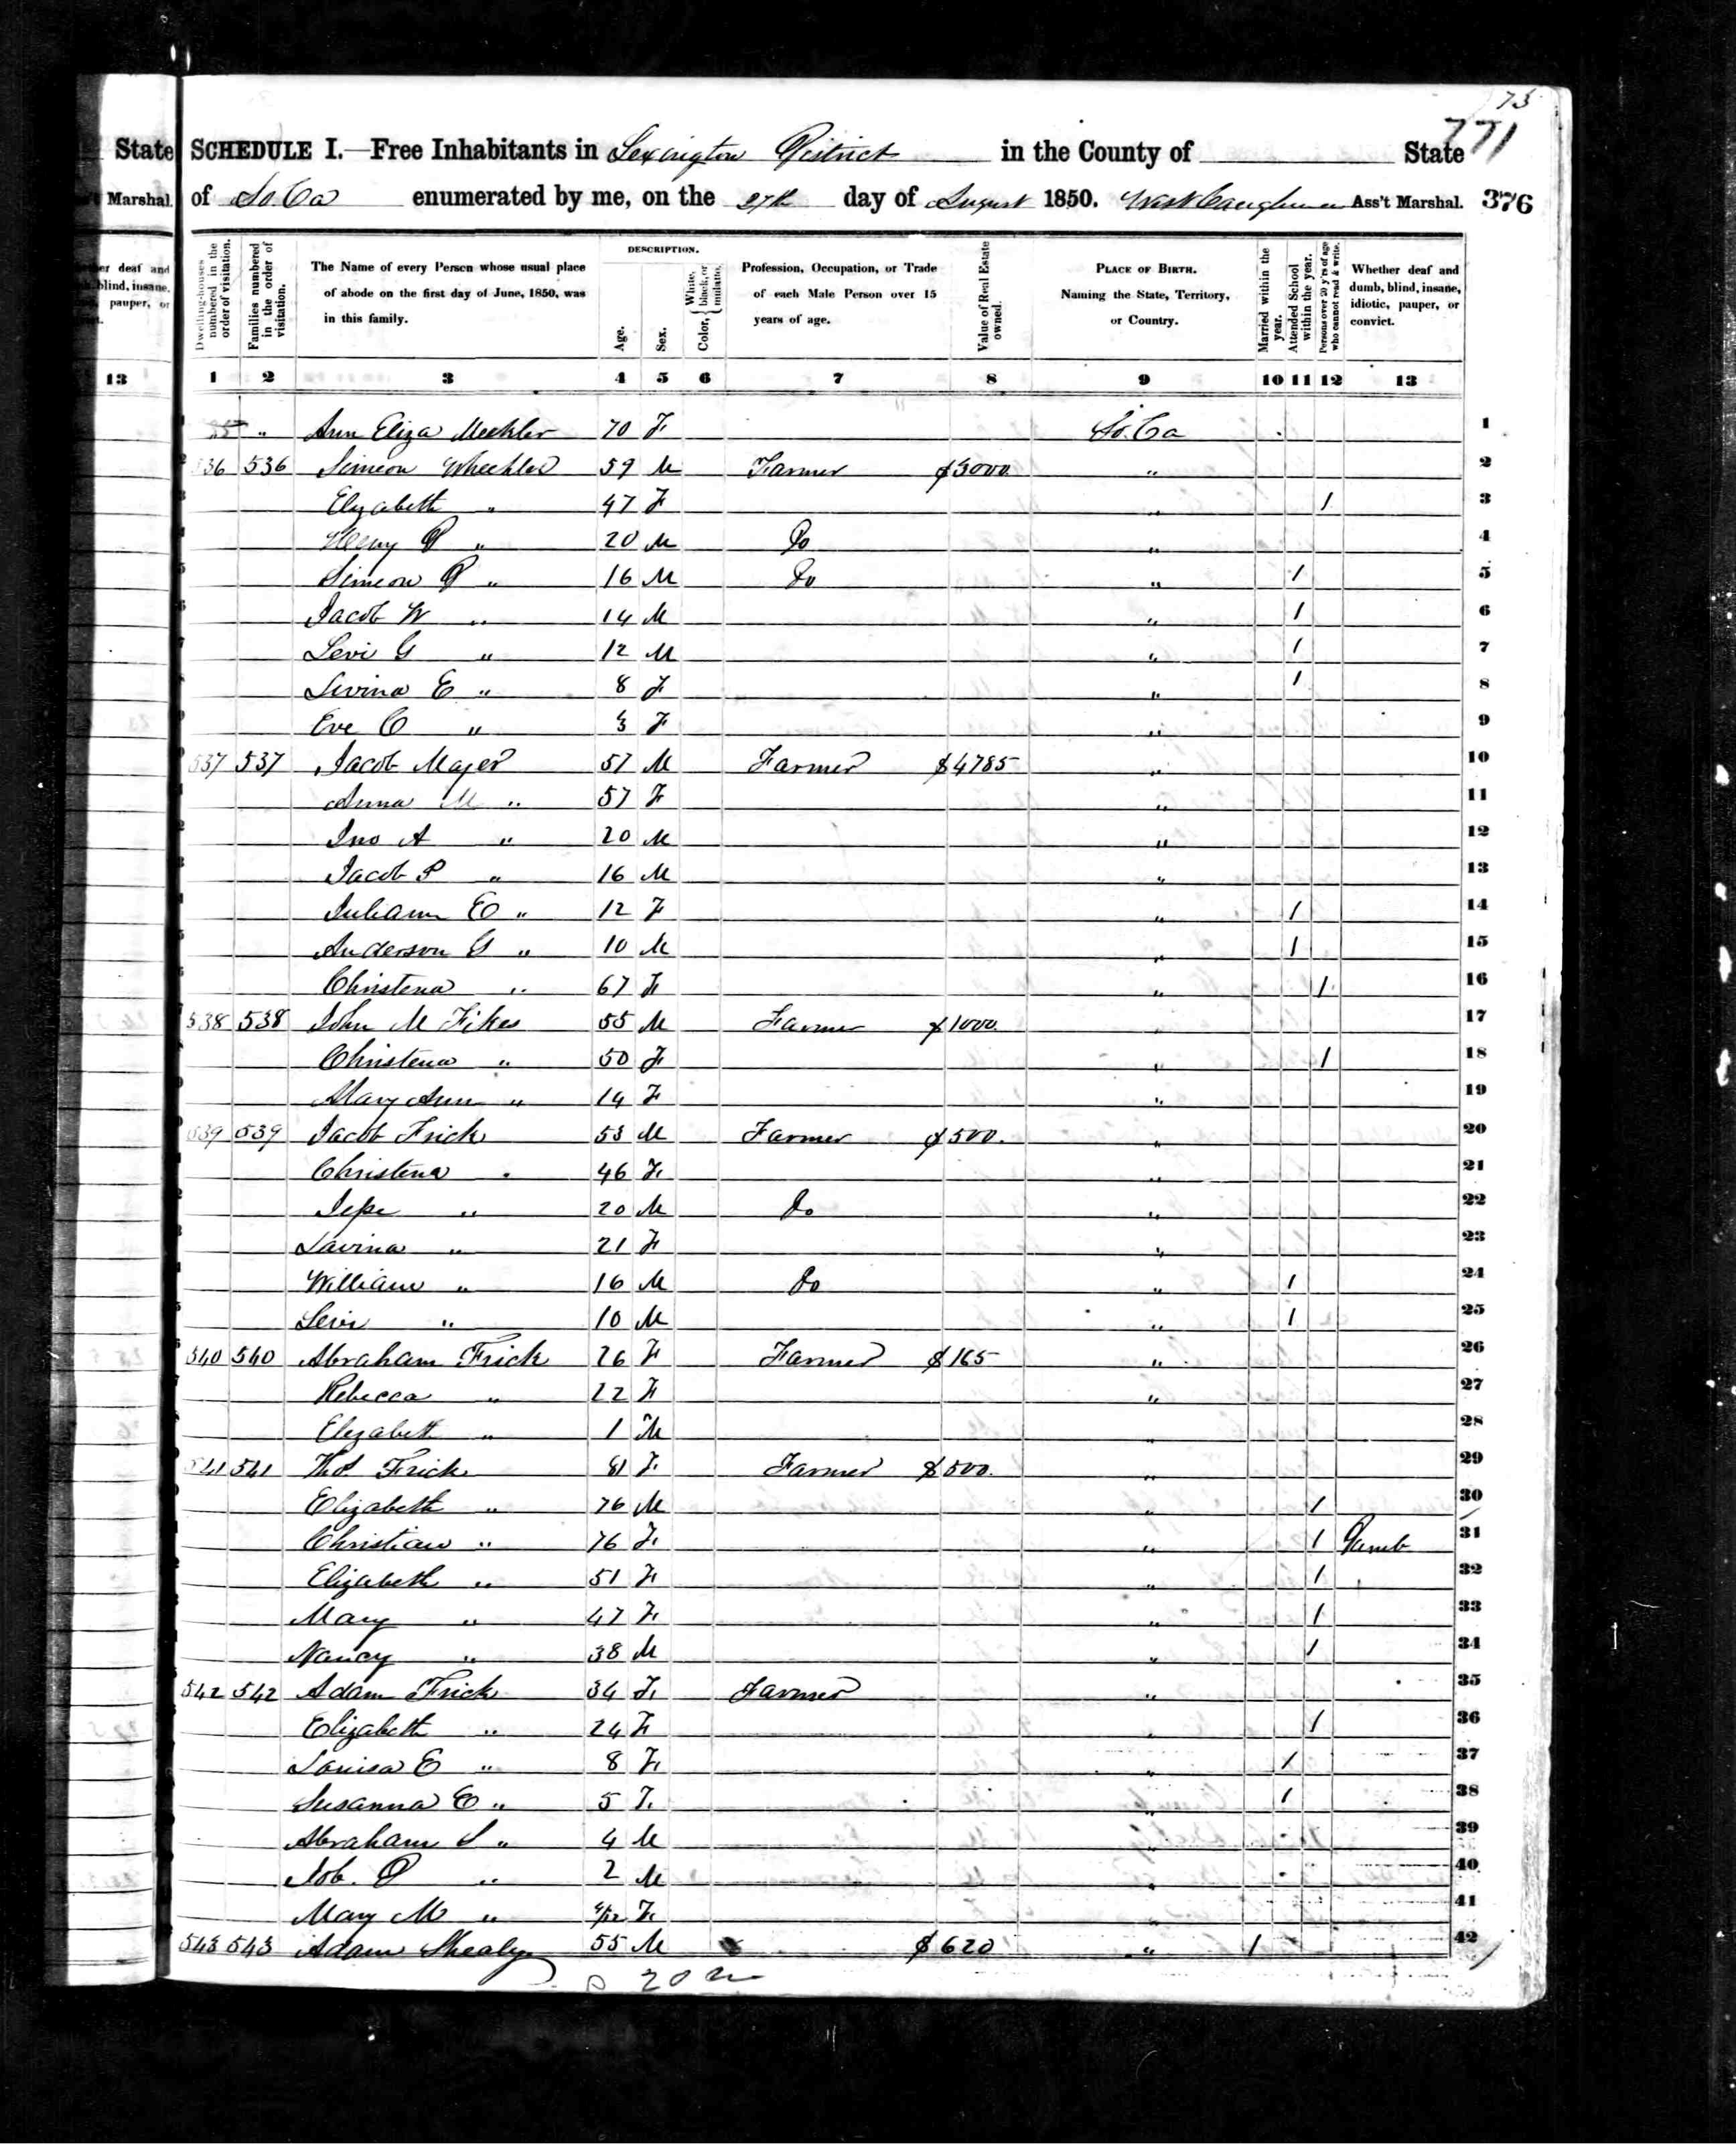 73
771
State SCHEDULE I.—Free Inhabitants in Lexington District in the County of State
Marshal. of So. Ca enumerated by me, on the 27th day of August 1850. Ass't Marshal. 376
Dwelling-houses numbered in the order of visitation.
Families numbered in the order of visitation.
The Name of every Person whose usual place of abode on the first day of June, 1850, was in this family.
DESCRIPTION.
Age.
Sex.
Color, White, black, or mulatto.
Profession, Occupation, or Trade of each Male Person over 15 years of age.
Value of Real Estate owned.
PLACE OF BIRTH. Naming the State, Territory, or Country.
Married within the year.
Attended School within the year.
Persons over 20 y'rs of age who cannot read & write.
Whether deaf and dumb, blind, insane, idiotic, pauper, or convict.
13 1 2 3 4 5 6 7 8 9 10 11 12 13
" Ann Eliza Meehler 70 F So. Ca 1
536 536 Simeon Wheehler 59 M Farmer $3000 " 2
Elizabeth " 47 F " 1 3
Henry P " 20 M Do " 4
Simeon P " 16 M Do " 1 5
Jacob W " 14 M " 1 6
Levi G " 12 M " 1 7
Levina E " 8 F " 1 8
Eve C " 3 F " 9
537 537 Jacob Majer 57 M Farmer $4785 " 10
Anna M " 57 F " 11
Jno A " 20 M " 12
Jacob P " 16 M " 13
Juliann E " 12 F " 1 14
Anderson G " 10 M " 1 15
Christena " 67 F " 1 16
538 538 John M Fikes 55 M Farmer $1000 " 17
Christena " 50 F " 1 18
Mary Ann " 14 F " 19
539 539 Jacob Frick 53 M Farmer $500. " 20
Christena " 46 F " 21
Jesse " 20 M Do " 22
Lavina " 21 F " 23
William " 16 M Do " 1 24
Levi " 10 M " 1 25
540 540 Abraham Frick 26 F Farmer $165 " 26
Rebecca " 22 F " 27
Elizabeth " 1 M " 28
541 541 Thos Frick 81 F Farmer $500. " 29
Elizabeth " 76 M " 1 30
Christian " 76 F " 1 Dumb 31
Elizabeth " 51 F " 1 32
Mary " 47 F " 1 33
Nancy " 38 M " 1 34
542 542 Adam Frick 34 F Farmer " 35
Elizabeth " 24 F " 1 36
Louisa E " 8 F " 1 37
Susanna E " 5 F " 1 38
Abraham S " 4 M " 39
Job. P " 2 M " 40
Mary M " F " 41
543 543 Adam Shealy 55 M $620 " 1 42